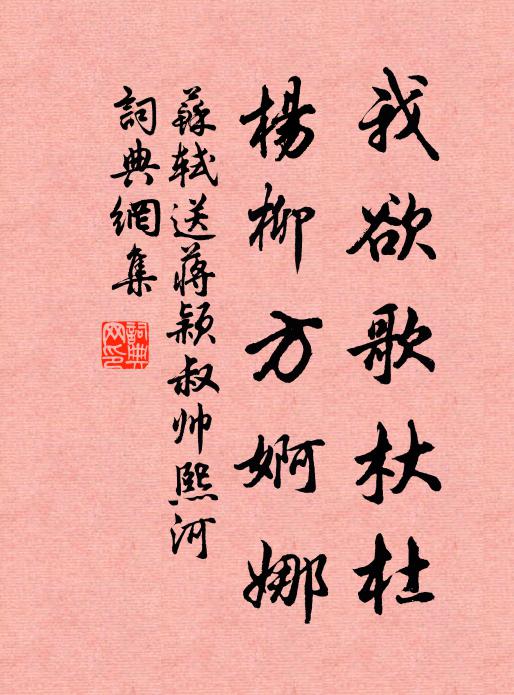 我欲歌杕杜
楊柳方婀娜
蘇軾送蔣穎叔帅熙河
詞典網集
詞典网印